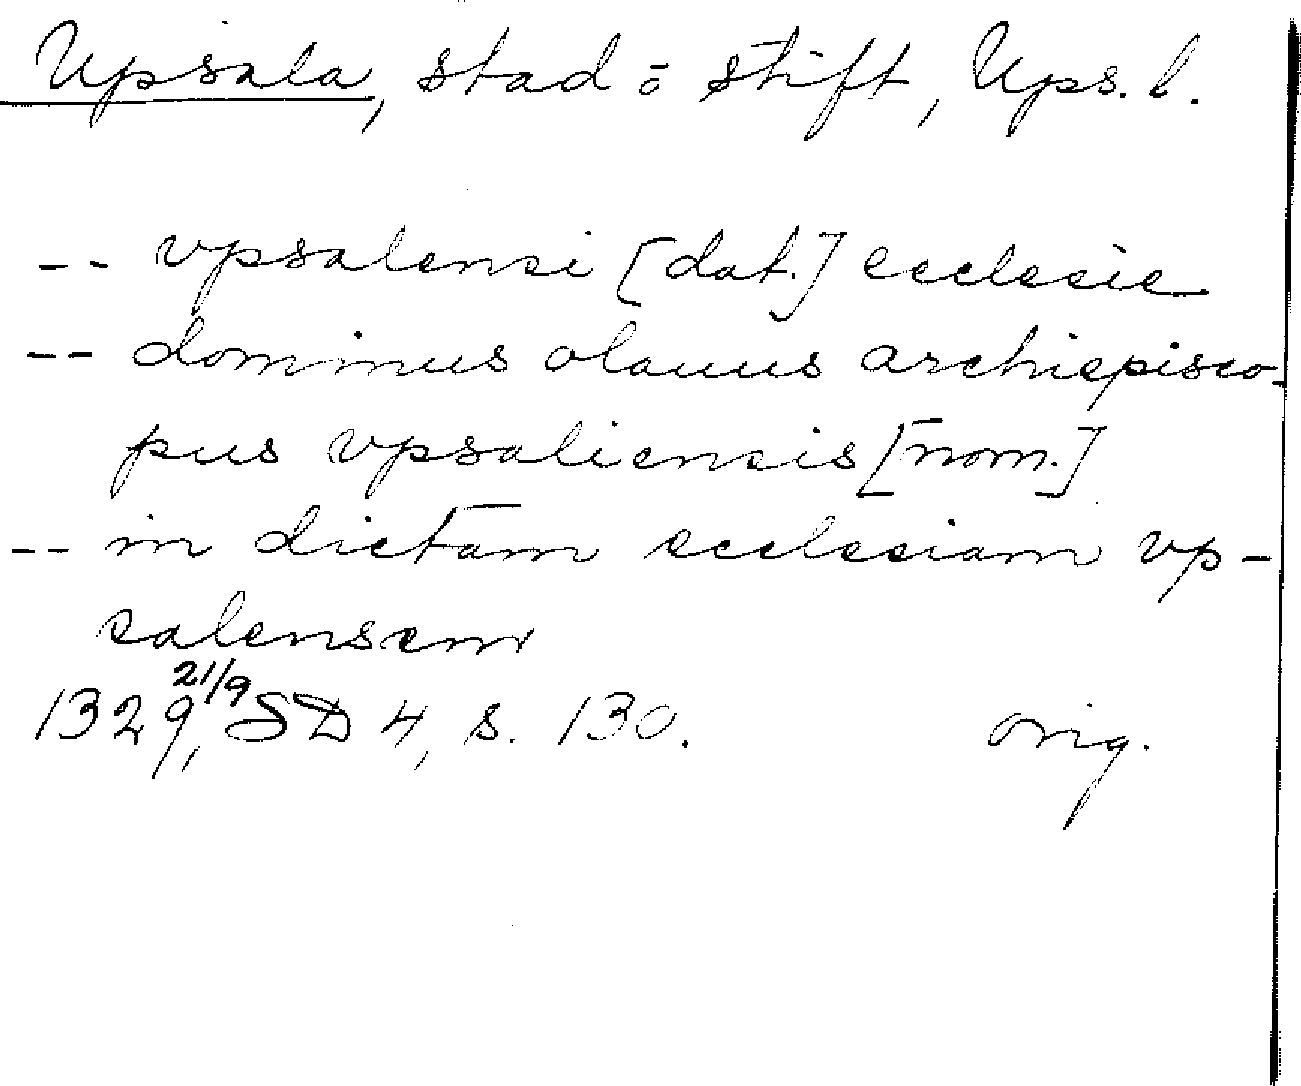 Upsala, stad o stift, Ups. l.
-- vpsalensi [dat.] ecclesie
-- dominus olauus archiepisco-
pus vpsaliensis [nom.]
-- in dictam ecclesiam vp-
salensem
1329, 21/9 SD 4, s. 130. orig.